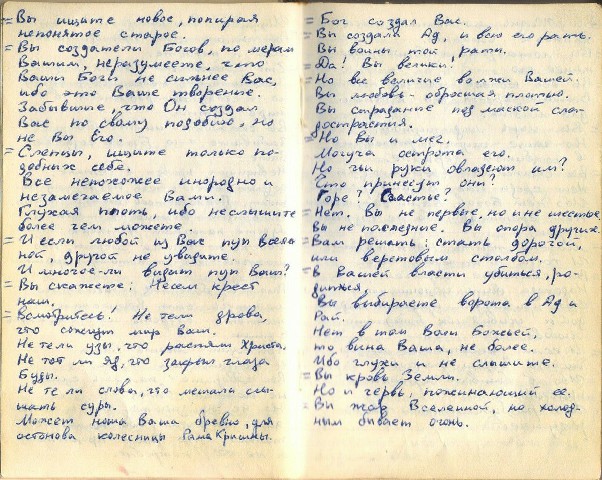 = Вы ищите новое, попирая
непонятое старое.
= Вы создатели Богов, по мерам
Вашим, неразумеете, что
Ваши Боги не сильнее Вас,
ибо это Ваше творение.
Забывшие, что Он создал
Вас по свому подобию, но
не Вы Его.
= Слепцы, ищите только по-
добных себе.
Все непохожее инородно и
незамечаемое Вами.
Глухая плоть, ибо неслышите
более чем можете
= И если любой из Вас пуп Вселен
ной, другой не увидите.
И многое-ли видит пуп Ваш?
= Вы скажете: Несем крест
наш.
= Всмотритесь! Не те ли дрова,
что сожгут мир Ваш.
Не те ли узы, что распяли Христа.
Не тот ли яд, что закрыл глаза
Будды.
Не те ли слова, что мешали слы-
шать суры.
Может ноша Ваша бревно, для
остонова колесницы Рама Кришны.
= Бог создал Вас.
= Вы создали Ад, и всю его рать.
Вы воины той рати.
= Да! Вы велики!
Но все величие во лжи Вашей.
Вы любовь - обросшая плотью.
Вы страдание под маской сла-
дострастия.
= Но Вы и меч.
Могуча острота его.
Но чьи руки овладеют им?
Что принесут они?
Горе? Счастье?
= Нет. Вы не первые, но и не шестые,
Вы не последние. Вы опора других.
= Вам решать: стать дорогой,
или верстовым столбом.
= В Вашей власти убиться, ро-
диться.
Вы выбираете ворота в Ад и
Рай.
Нет в том Воли Божьей,
то вина Ваша, не более.
Ибо глухи и не слышите.
= Вы кровь Земли.
Но и червь, пожинающий ее.
= Вы жар Вселенной, но холод-
ным бывает огонь.